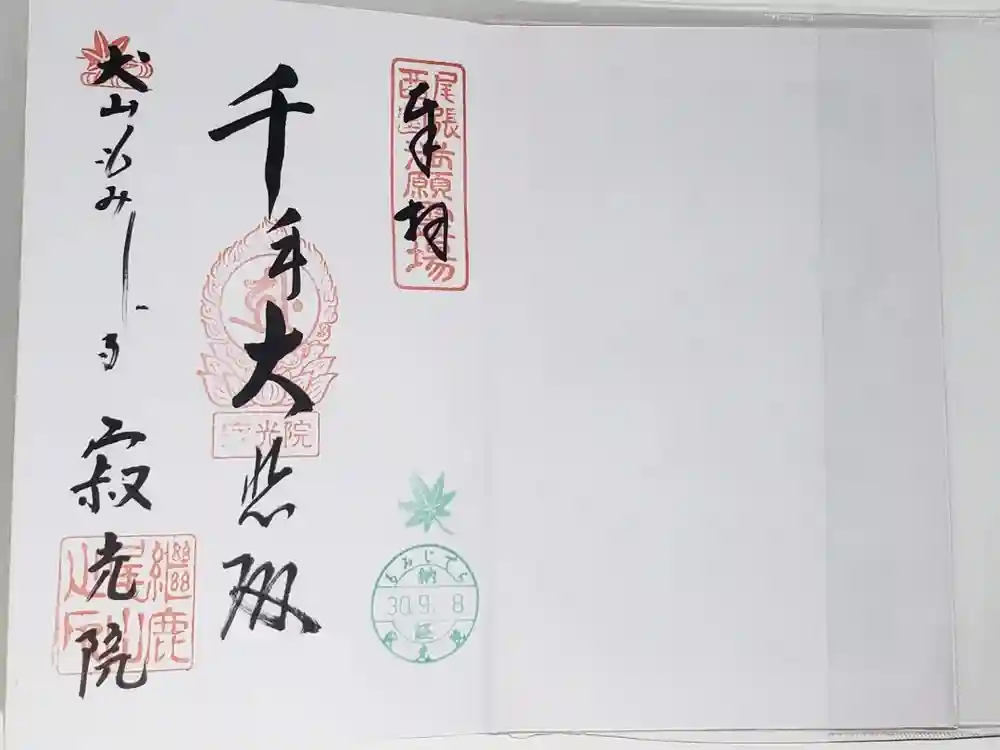 奉拝
尾張
西国
満願
霊場
千手大悲殿
寂光院
犬山もみじ寺 寂光院
継鹿
尾山
もみじでら
納
30.9.8